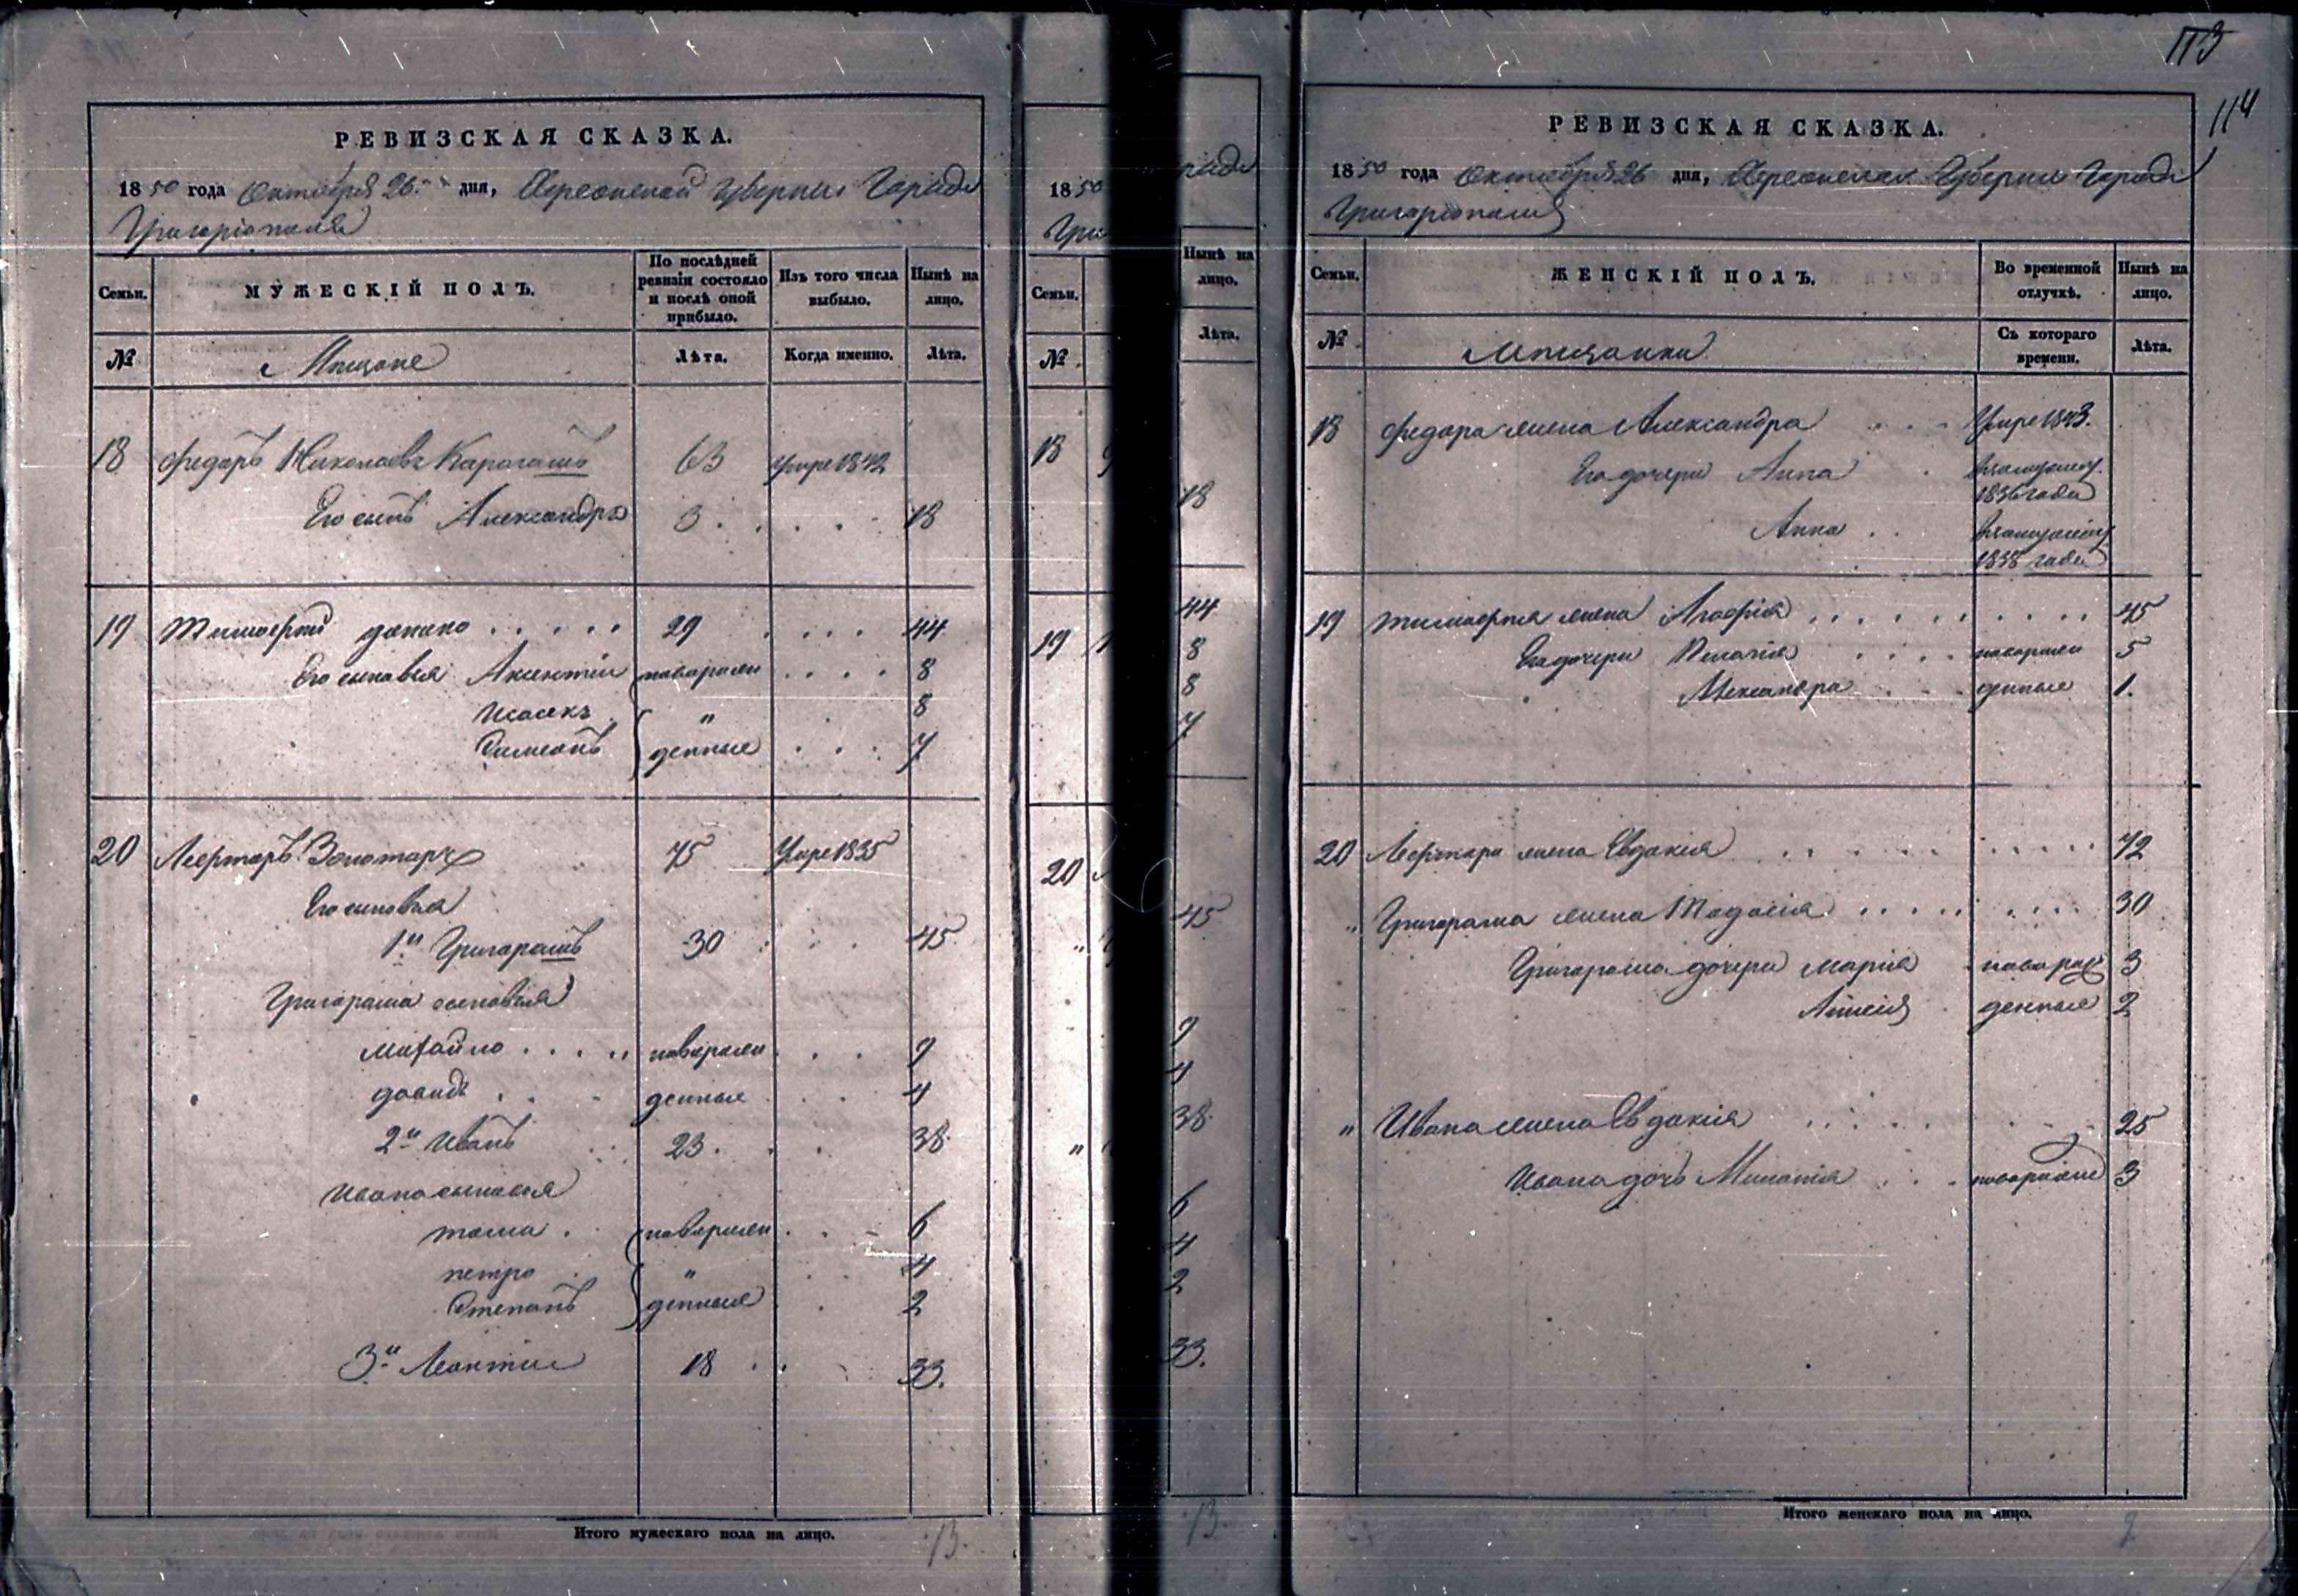 113
114
РЕВИЗСКАЯ СКАЗКА.
1850 года Октября 26 дня, Херсонской Губернии Города
Григоріополя
Семьи.
МУЖЕСКІЙ ПОЛЪ.
По послѣдней ревизіи состояло и послѣ оной прибыло.
Изъ того числа выбыло.
Нынѣ на лицо.
№
Мещане
Лѣта.
Когда именно.
Лѣта.
18 Федоръ Николаевъ Карагашъ 63 умре 1842
Его сынъ Александръ 3 18
19 Тимофтій 29 44
Его сыновья Аксентій новорожден 8
Исаекъ " 8
Симеонъ денные 7
20 Золотарь 75 Умре 1835
Его сыновья
1й Григорашъ 30 45
Григораша сыновья
Михайло новорожден 9
Давидъ денные 4
2й Иванъ 23 38
Ивана сыновья
Тома новорожден 6
Петро " 4
Степанъ денные 2
3й Леонтій 18 33.
Итого мужескаго пола на лицо. 13
1850
Гри
Семьи.
№
18
19
20
"
"
рода
Нынѣ на лицо.
Лѣта.
18
44
8
8
7
45
9
4
38
6
4
2
33.
13
РЕВИЗСКАЯ СКАЗКА.
1850 года Октября 26 дня, Херсонской Губернии Города
Григоріополя
Семьи.
ЖЕНСКІЙ ПОЛЪ.
Во временной отлучкѣ.
Нынѣ на лицо.
№
Мещанки
Съ котораго времени.
Лѣта.
18 Федора жена Александра Умре 1843.
Его дочери Анна в замужеств.
1836 года
Анна в замужеств
1838 года
19 Тимофтія жена Агафія 45
Его дочери Пелагія новорожден 5
Александра денные 1.
20 жена Евдокія 72
" Григораша жена Тодосія 30
Григораша дочери Марія новорож 3
денные 2
" Ивана жена Евдокія 25
Ивана дочь новорожден 3
Итого женскаго пола на лицо. 9